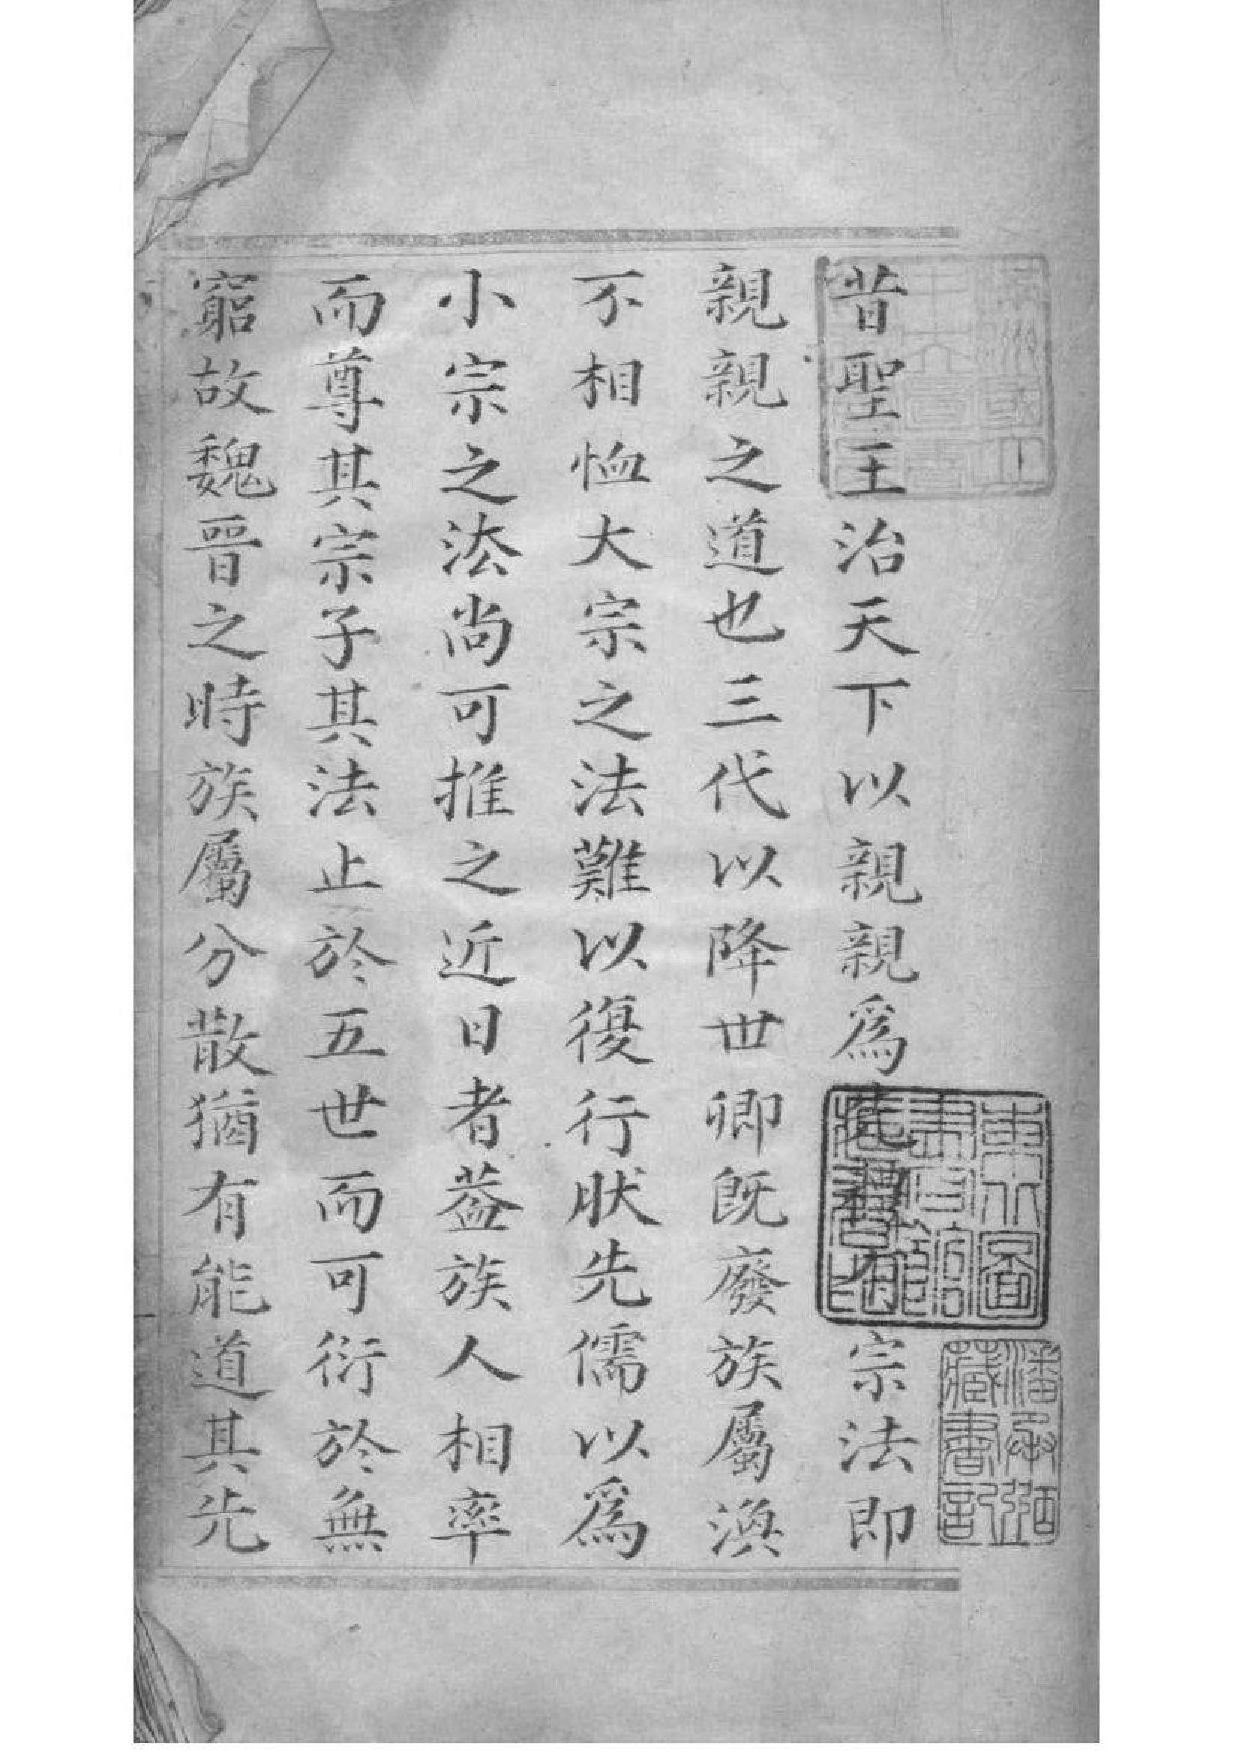 昔聖王治天下以親親爲先禮有宗法即
親親之道也三代以降世卿既廢族屬渙
不相恤大宗之法難以復行狀先儒以爲
小宗之法尚可推之近日者葢族人相率
而尊其宗子其法止於五世而可衍於無
窮故魏晉之時族屬分散猶有能道其先
潘承弼
藏書記